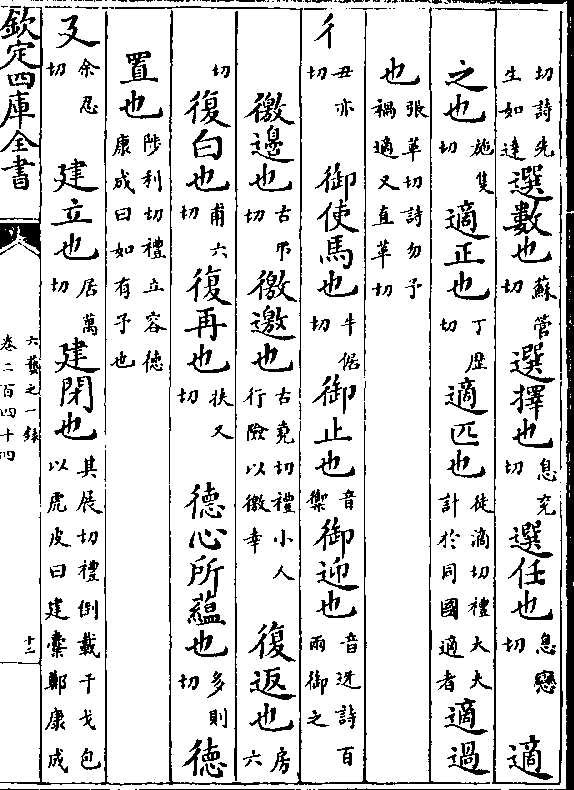 切詩先生如達選數也蘇管切選擇也息兖切選任也息戀切適
之也施隻切適正也丁歴切適匹也徒滴切禮大夫計於同國適者適過
也張革切詩勿予禍適又直革切
彳丑亦切御使馬也牛倨切御止也音禦御迎也音迓詩百兩御之
徼邊也古弔切徼邀也古堯切禮小人行險以徼幸復返也房六
切復白也甫六切復再也扶又切德心所蘊也多則切德
置也陟利切禮立容德康成曰如有予也
廴余忍切建立也居萬切建閉也其展切禮倒載干戈包以虎皮曰建櫜鄭康成
欽定四庫全書
六藝之一録
卷二百四十四
十二